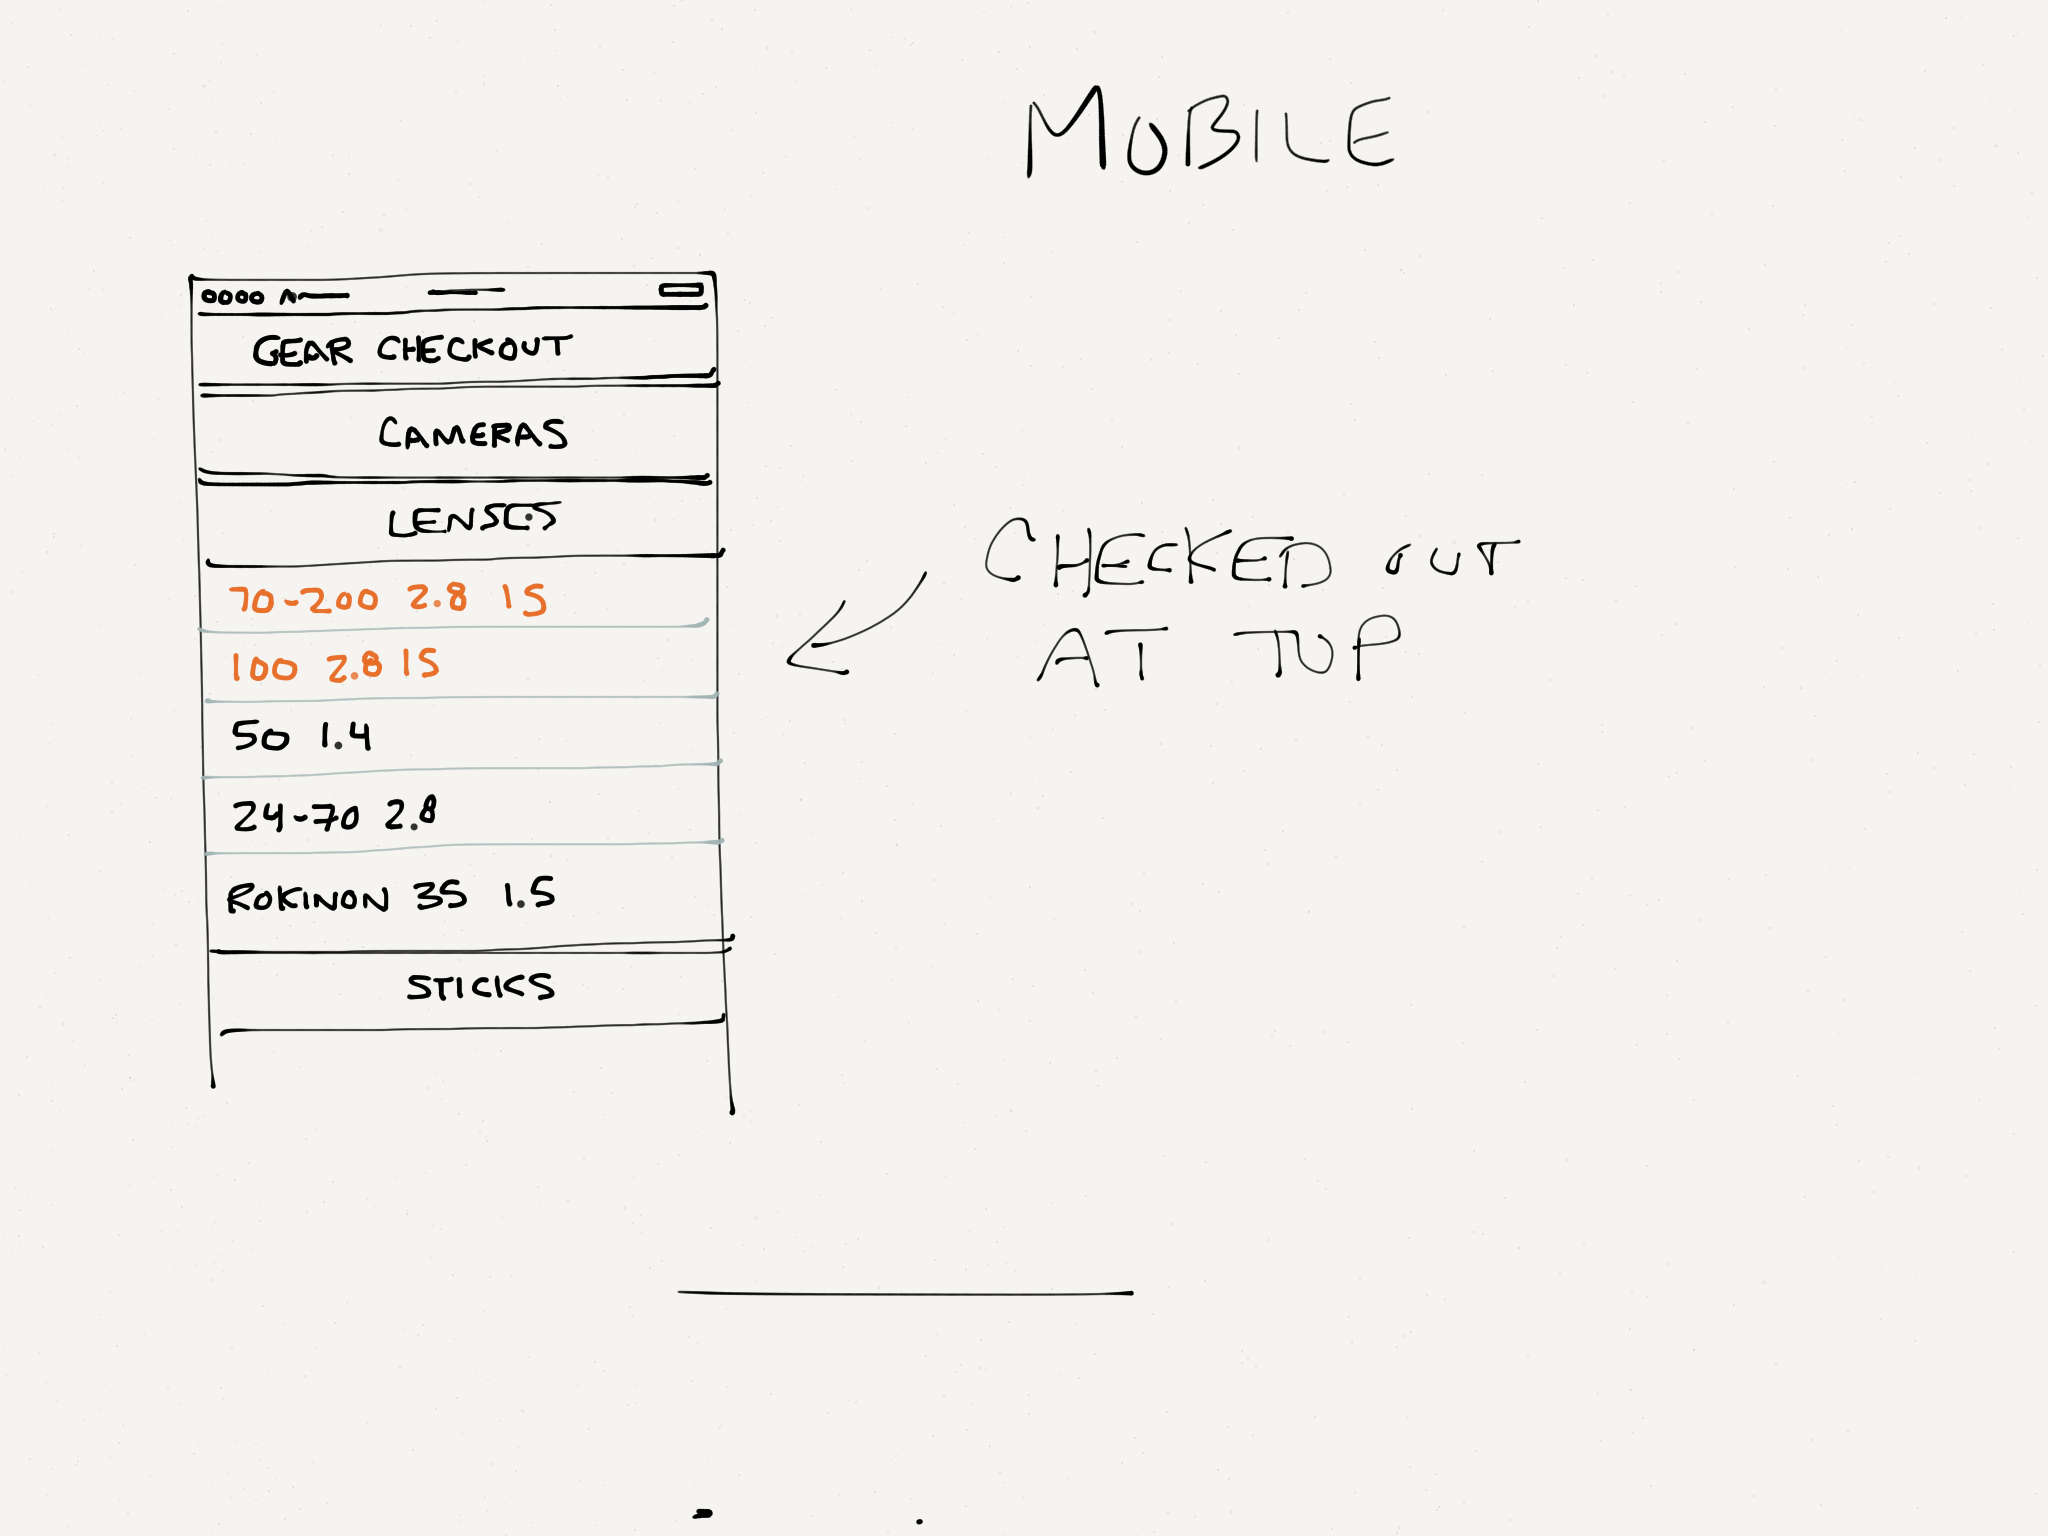 MOBILE
GEAR CHECKOUT
CAMERAS
LENSES
70-200 2.8 IS
100 2.8 IS
50 1.4
24-70 2.8
ROKINON 35 1.5
STICKS
CHECKED OUT
AT TOP